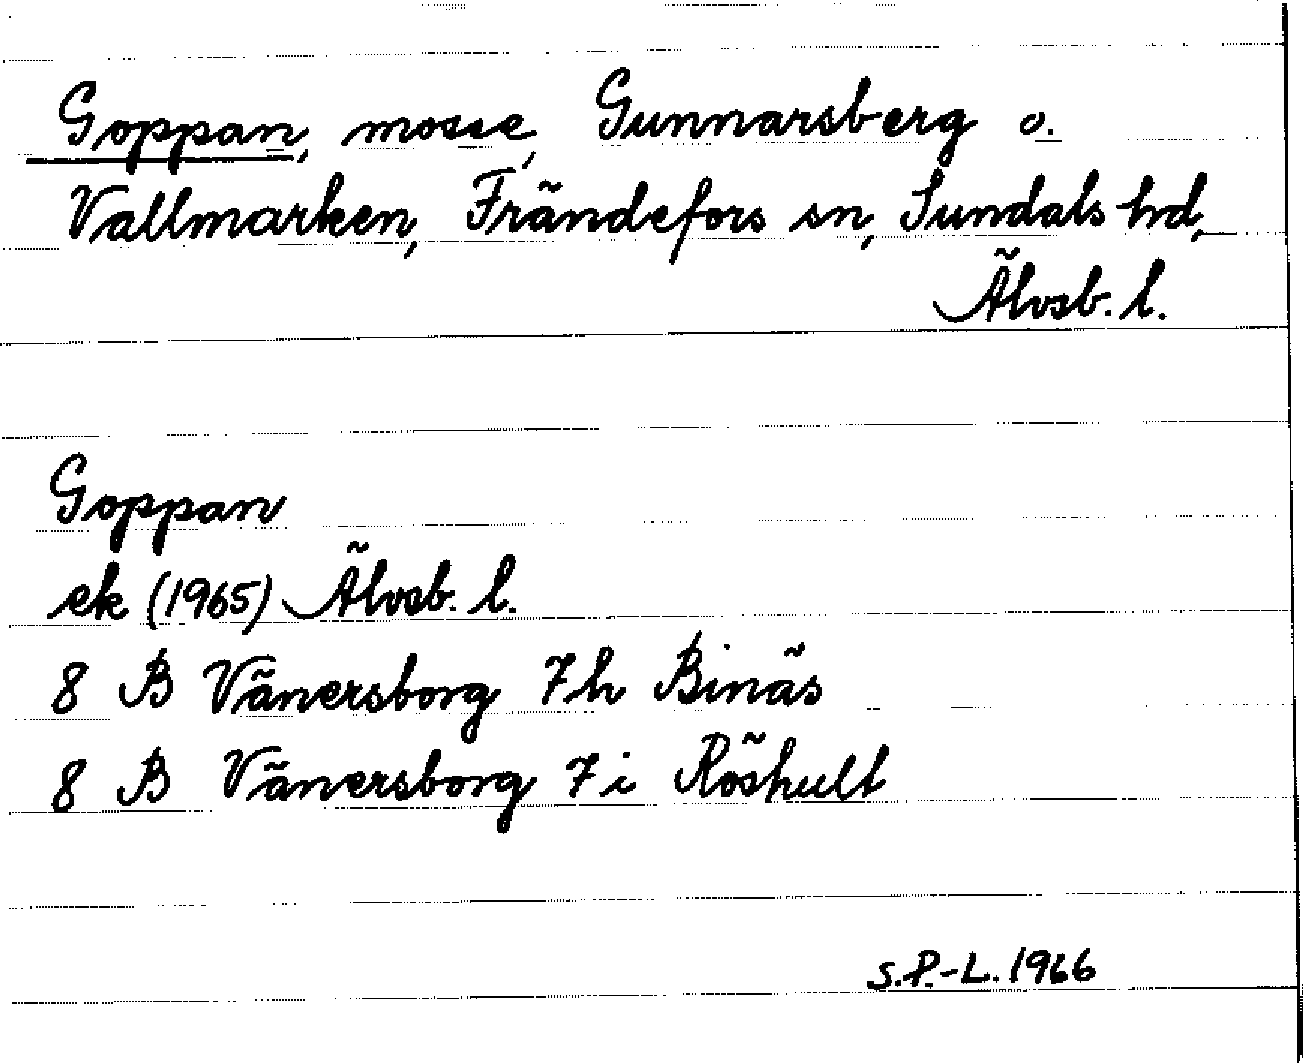 Goppan, mosse, Gunnarsberg o.
Vallmarken, Frändefors sn, Sundals hd,
Älvsb. l.
Goppan
ek (1965) Älvsb. l.
8 B Vänersborg 7h Binäs
8 B Vänersborg 7i Röshult
S.P.-L. 1966